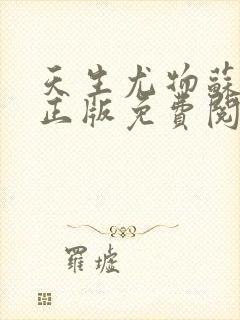 天生尤物蘇
正版免費閱
羅墟